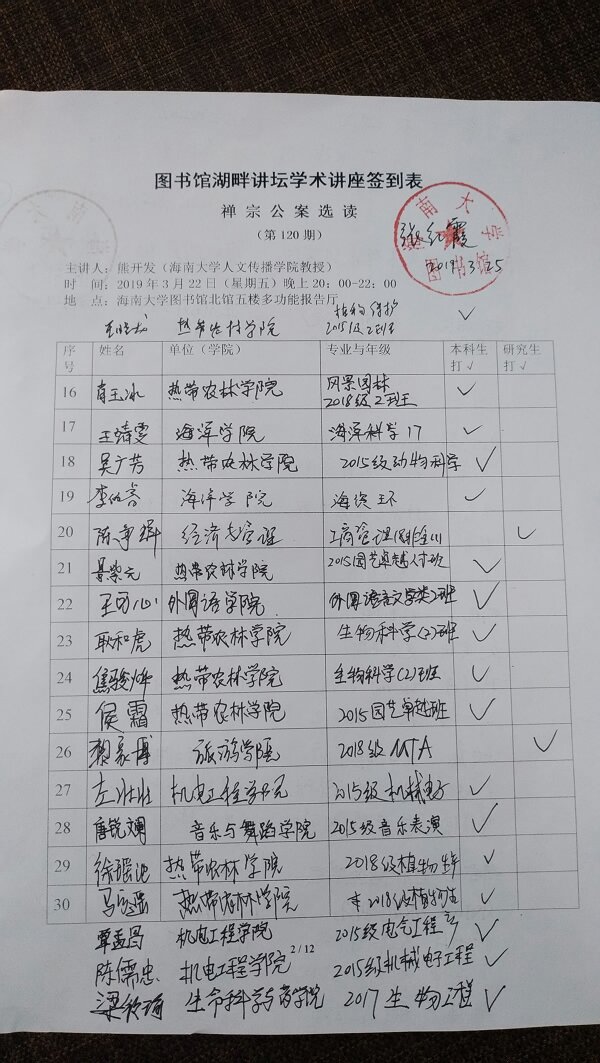 图书馆湖畔讲坛学术讲座签到表
禅宗公案选读
(第 120 期)
海南大学
图书馆
张红霞
2019.3.25
主讲人：熊开发（海南大学人文传播学院教授）
时 间：2019 年 3 月 22 日（星期五）晚上 20：00-22：00
地 点：海南大学图书馆北馆五楼多功能报告厅
热带农林学院 植物保护 2015级2班 ✓
序号 姓名 单位（学院） 专业与年级 本科生打√ 研究生打√
16 肖玉冰 热带农林学院 风景园林 2018级2班 ✓
17 王靖雯 海洋学院 海洋科学17 ✓
18 吴广芳 热带农林学院 2015级动物科学 ✓
19 海洋学院 ✓
20 经济与管理 工商管理 ✓
21 景紫元 热带农林学院 2015园艺卓越人才班 ✓
22 王可心 外国语学院 外国语言文学类2班 ✓
23 耿和虎 热带农林学院 生物科学(2)班 ✓
24 焦骏烨 热带农林学院 生物科学(2)班 ✓
25 侯霜 热带农林学院 2015园艺卓越班 ✓
26 赖家博 旅游学院 2018级 MTA ✓
27 左壮壮 机电工程学院 2015级机械电子 ✓
28 唐锐斓 音乐与舞蹈学院 2015级音乐表演 ✓
29 热带农林学院 2018级植物 ✓
30 热带农林学院 2018级植物 ✓
覃孟昌 机电工程学院 2015级电气工程 ✓
2 / 12
陈儒忠 机电工程学院 2015级机械电子工程 ✓
生命科学与药学院 2017生物工程 ✓